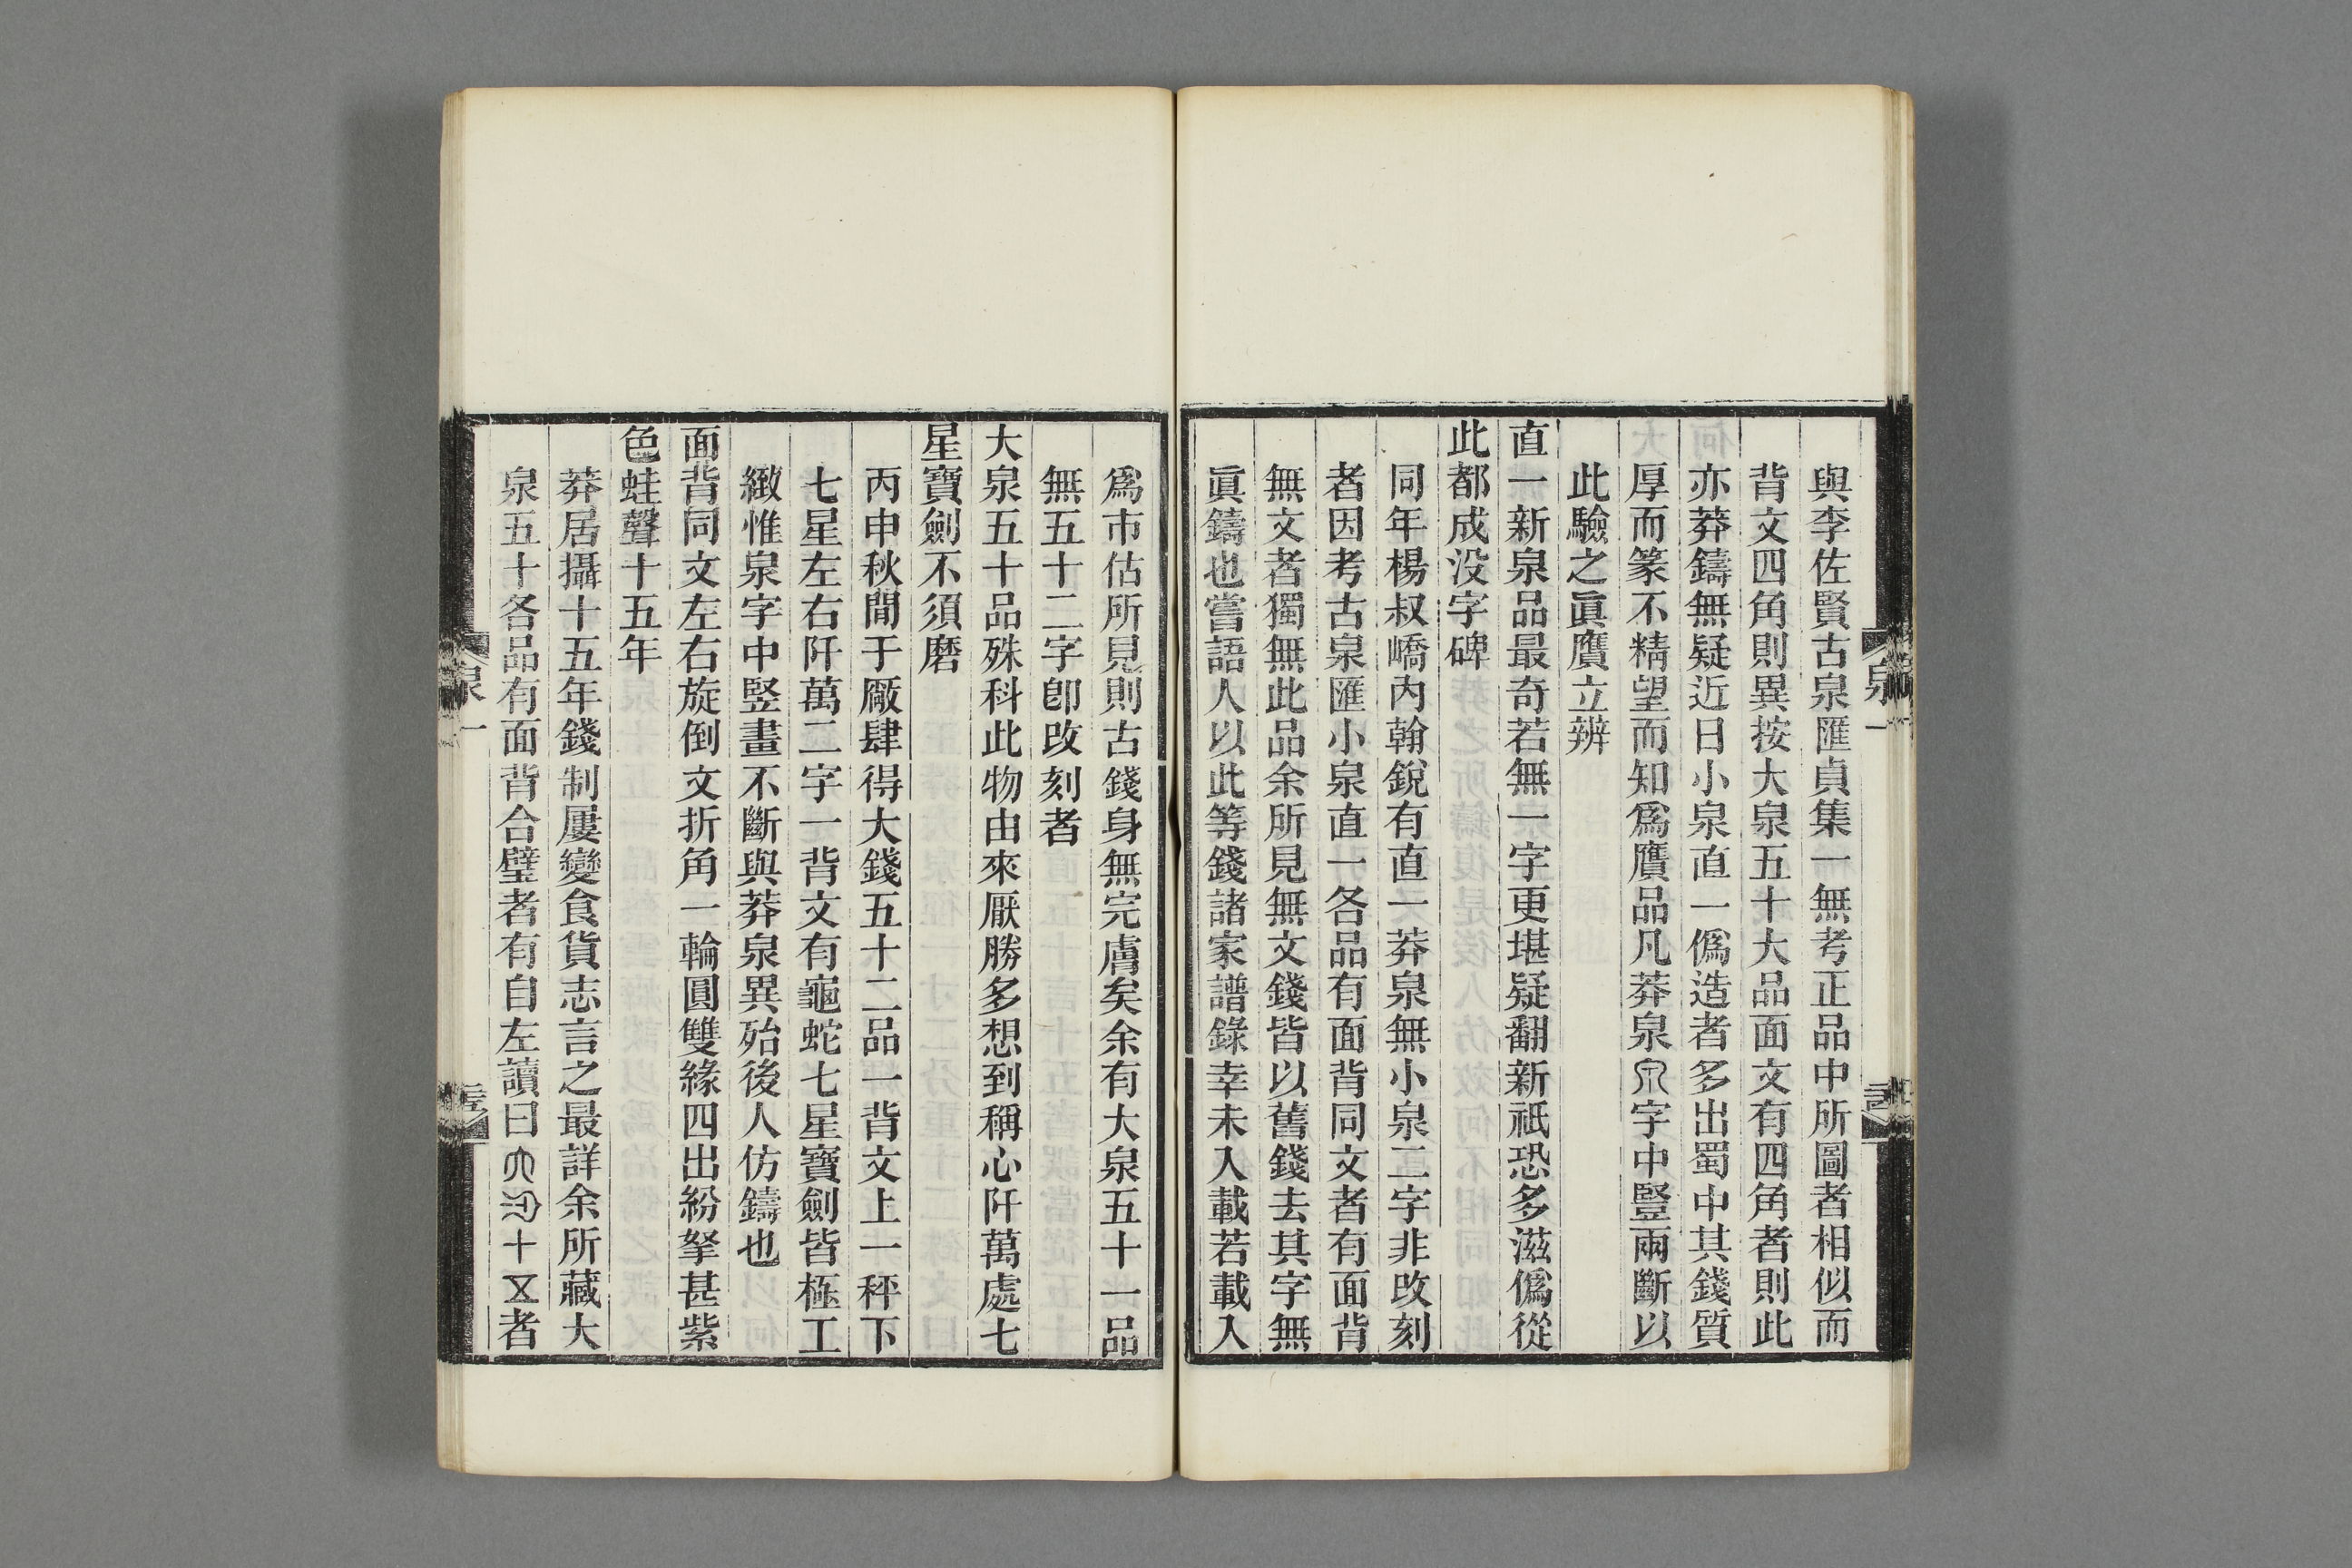 與李佐賢古泉匯貞集一無考正品中所圖者相似而
背文四角則異按大泉五十大品面文有四角者則此
亦莽鑄無疑近日小泉直一僞造者多出蜀中其錢質
厚而篆不精望而知爲贗品凡莽泉字中豎兩斷以
此驗之眞贗立辨
直一新泉品最奇若無一字更堪疑翻新祇恐多滋僞從
此都成没字碑
同年楊叔嶠内翰銳有直一莽泉無小泉二字非改刻
者因考古泉匯小泉直一各品有面背同文者有面背
無文者獨無此品余所見無文錢皆以舊錢去其字無
眞鑄也嘗語人以此等錢諸家譜錄幸未入載若載入
爲市估所見則古錢身無完膚矣余有大泉五十一品
無五十二字卽改刻者
大泉五十品殊科此物由來厭勝多想到稱心阡萬處七
星寶劍不須磨
丙申秋間于廠肆得大錢五十二品一背文上一秤下
七星左右阡萬二字一背文有龜蛇七星寶劍皆極工
緻惟泉字中竪畫不斷與莽泉異殆後人仿鑄也
面背同文左右旋倒文折角一輪圓雙緣四出紛拏甚紫
色蛙聲十五年
莽居攝十五年錢制屢變食貨志言之最詳余所藏大
泉五十各品有面背合璧者有自左讀曰十者
泉一
泉一